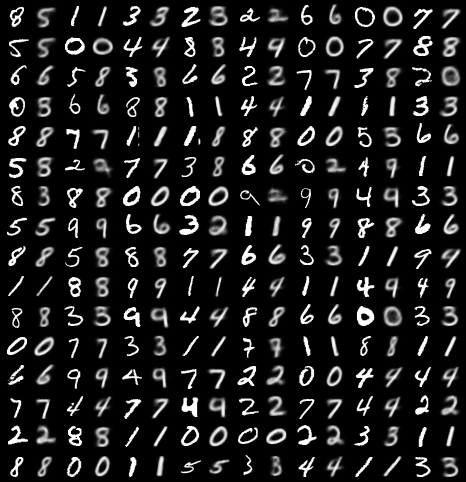 8 5 1 1 3 3 2 3 2 2 6 6 0 0 7 7
5 5 0 0 4 4 8 8 4 4 0 0 7 7 8 8
6 6 5 8 3 8 6 6 2 2 7 7 3 8 2 0
0 5 6 6 8 8 1 1 4 4 1 1 1 1 3 3
8 8 7 7 1 1 1 8 8 8 0 0 5 5 6 6
5 8 2 2 7 7 3 8 6 6 0 2 4 9 1 1
8 3 8 8 0 0 0 0 9 2 9 9 4 9 3 3
5 5 9 9 6 6 3 2 1 1 9 9 8 8 6 6
8 8 5 8 8 8 7 7 6 6 3 3 1 1 9 9
1 1 8 8 9 9 1 1 4 4 1 1 4 9 4 9
8 8 3 3 9 9 4 4 8 8 6 6 0 0 3 3
0 0 7 7 3 3 1 1 7 7 1 1 8 8 1 1
6 6 9 9 4 9 7 7 2 2 0 0 4 4 4 4
7 7 4 4 7 7 4 9 2 2 7 7 4 4 2 2
2 2 8 8 1 1 0 0 0 0 2 2 3 3 1 1
8 8 0 0 1 1 5 5 3 3 4 4 1 1 3 3